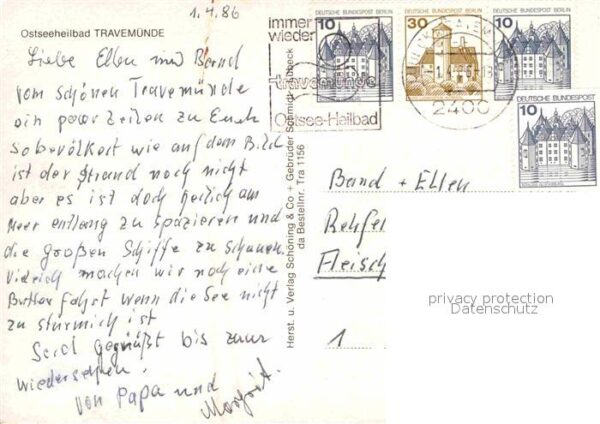 1.4.86
Ostseeheilbad TRAVEMÜNDE
Liebe Ellen und Bernd
vom schönen Travemünde
ein paar Zeilen zu Euch
so bevölkert wie auf dem Bild
ist der Strand noch nicht
aber es ist doch herlich am
Meer entlang zu spazieren und
die großen Schiffe zu schauen.
Vieleich machen wir noch eine
Butterfahrt wenn die See nicht
zu stürmich ist
Seid gegrüßt bis zum
wiedersehen.
von Papa und
Margrit.
Herst. u. Verlag Schöning & Co + Gebrüder Schmidt, Lübeck
da Bestellnr. Tra 1156
immer
wieder
travemünde
Ostsee-Heilbad
2400
10
DEUTSCHE BUNDESPOST BERLIN
30
DEUTSCHE BUNDESPOST BERLIN
10
DEUTSCHE BUNDESPOST BERLIN
10
DEUTSCHE BUNDESPOST BERLIN
Bernd + Ellen
Rehfe
Fleisch
1
privacy protection
Datenschutz